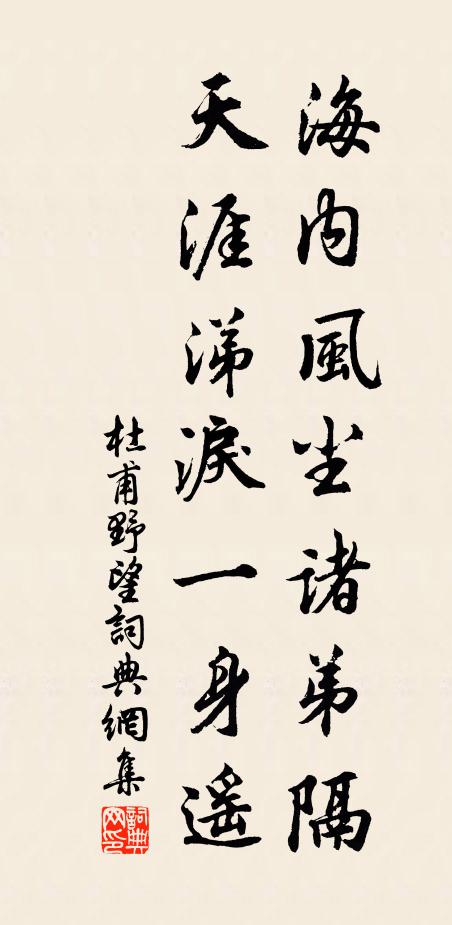 海内風尘諸弟隔
天涯涕淚一身遙
杜甫野望詞典網集
詞典网印